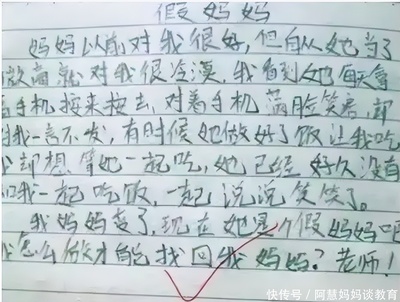 假妈妈
妈妈以前对我很好，但自从她当了
微商就对我很冷漠，我看到她每天拿
手机按来按去，对着手机满脸笑容，却
对我一言不发，有时候她做好了饭让我吃
我却想等她一起吃，她已经好久没有
和我一起吃饭，一起说说笑笑了。
我妈妈变了，现在她是个假妈妈吧
我怎么做才能找回我妈妈？老师！
快传号/阿慧妈妈谈教育